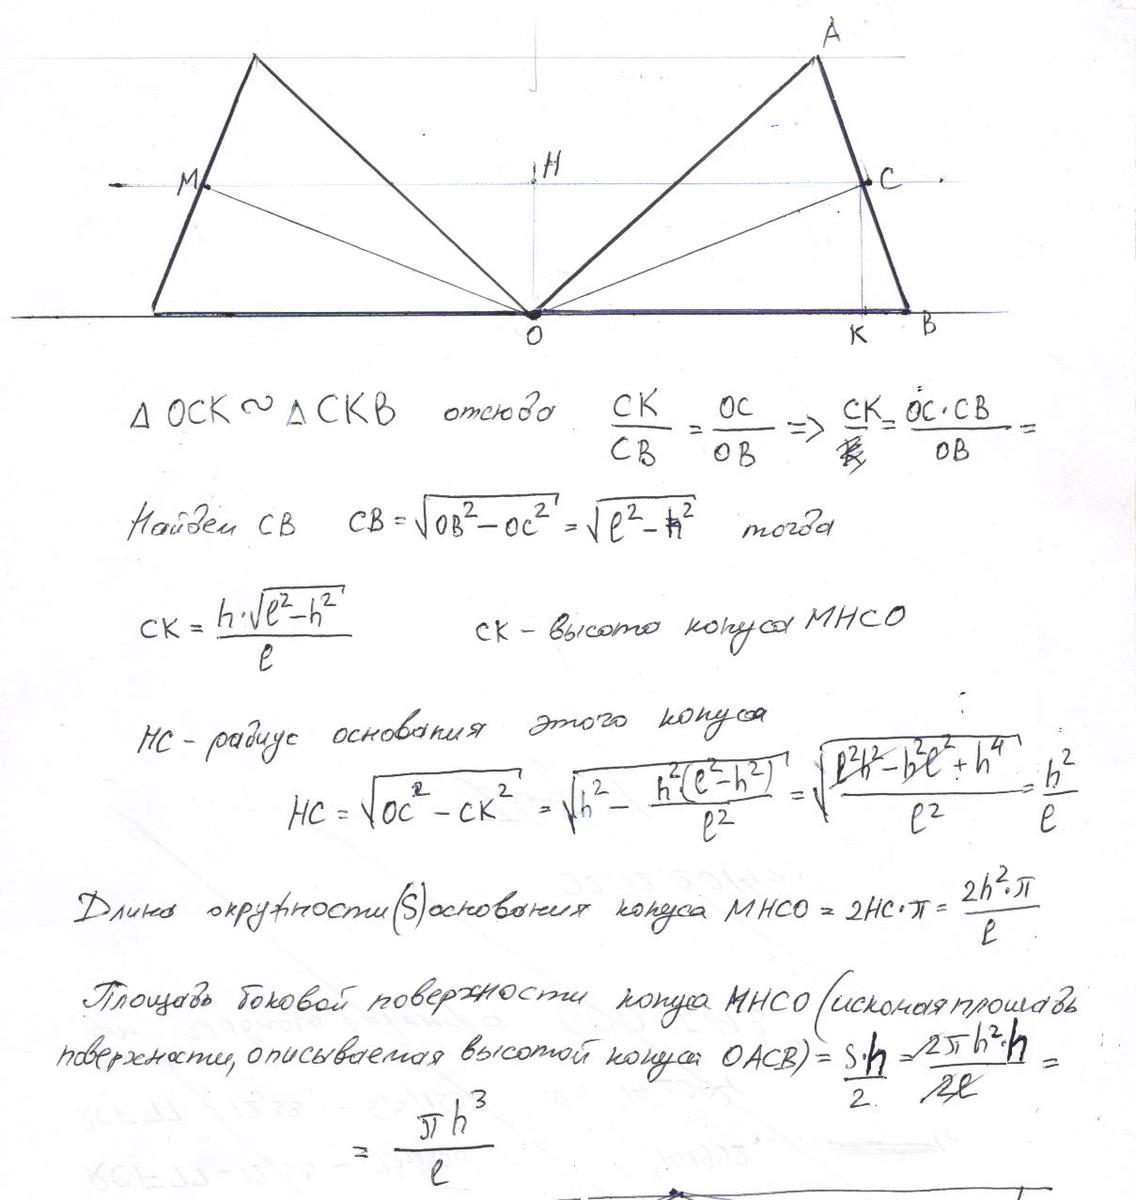 A
M
H
C
O
K
B
Δ OCK ~ Δ CKB отсюда CK/CB = OC/OB => CK = OC·CB/OB =
Найдем CB CB = √(OB² − OC²) = √(l² − h²) тогда
CK = h·√(l² − h²)/l CK - высота конуса MHCO
HC - радиус основания этого конуса
HC = √(OC² − CK²) = √(h² − h²(l² − h²)/l²) = √((l²h² − h²l² + h⁴)/l²) = h²/l
Длина окружности (S) основания конуса MHCO = 2HC·π = 2h²·π/l
Площадь боковой поверхности конуса MHCO (искомая прощадь
поверхности, описываемая высотой конуса OACB) = S·h/2 = 2πh²·h/2l =
= πh³/l